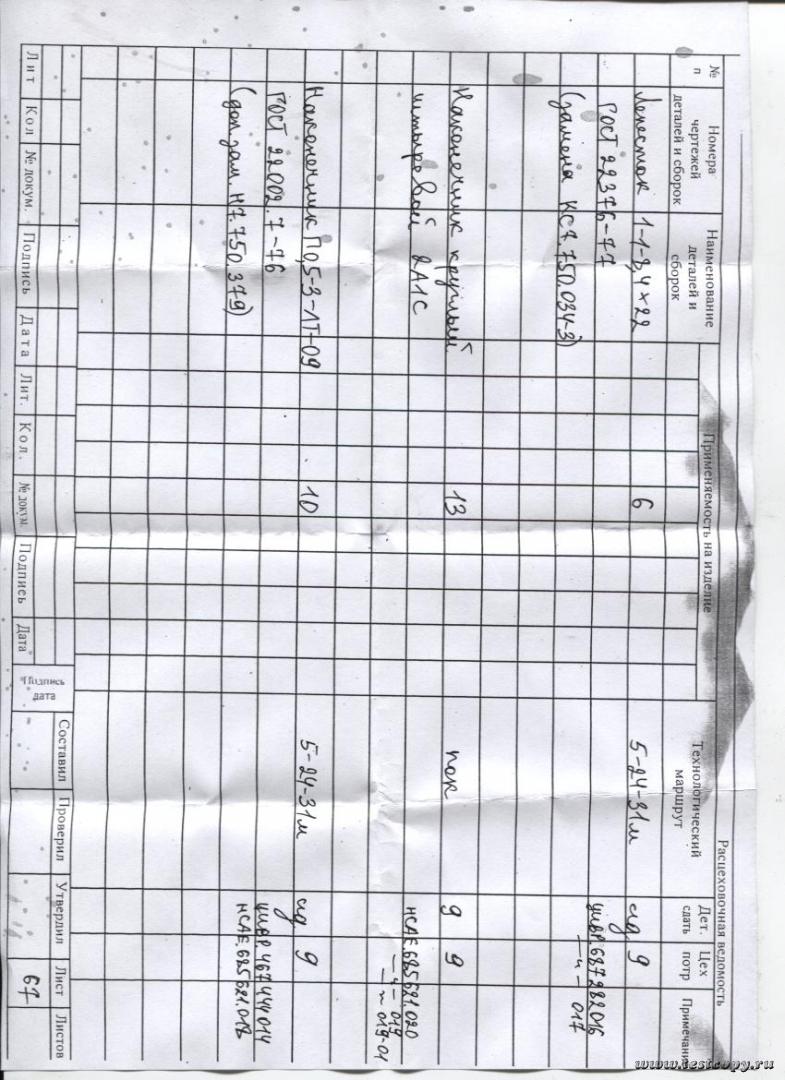 Расцеховочная ведомость
№ п
Номера чертежей деталей и сборок
Наименование деталей и сборок
Применяемость на изделие
Технологический маршрут
Дет. сдать
Цех потр
Примечани
Лепесток 1-1-3,4×22 6 5-24-31м 9
ГОСТ 22376-77
(замена КС7.750.034-3) —"— 017
Наконечник круглый 13 пок 9 9
штыревой 2А1С НСАЕ.685621.020
—"— 019
—"— 019-01
Наконечник П0,5-3-ЛТ-09 10 5-24-31м 9
ГОСТ 22002.7-76
(доп.зам. Н7.750.379) НСАЕ.685621.018
Подпись дата
Составил Проверил Утвердил Лист Листов
Лит Кол № докум. Подпись Дата Лит. Кол. № докум. Подпись Дата 67
www.testcopy.ru